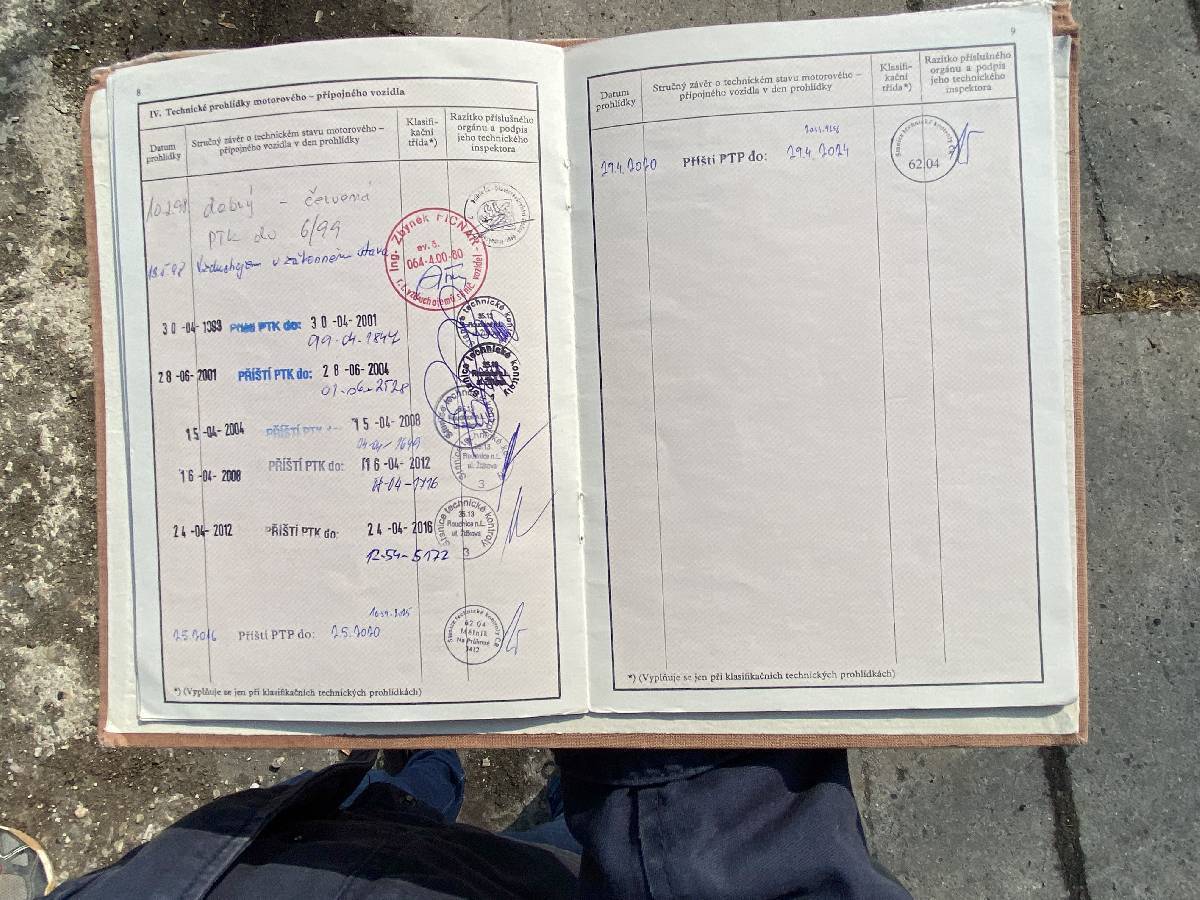 8
IV. Technické prohlídky motorového – přípojného vozidla
Datum prohlídky
Stručný závěr o technickém stavu motorového – přípojného vozidla v den prohlídky
Klasifi-kační třída*)
Razítko příslušného orgánu a podpis jeho technického inspektora
10.2.98 dobrý – červená
PTK do 6/99
Ing. Zbyněk
ev. č.
064-4.00-80
v zákonném stavu
30 -04- 1999 Příští PTK do: 30 -04- 2001
99-04-1847
Stanice technické kontroly
35.13
28 -06- 2001 PŘÍŠTÍ PTK do: 28 -06- 2004
01-06-2528
Stanice technické kontroly
15 -04- 2004 PŘÍŠTÍ PTK 15 -04- 2008
16 -04- 2008 PŘÍŠTÍ PTK do: 16 -04- 2012
Stanice technické kontroly
35.13
Roudnice n.L.
ul. Žižkova
3
24 -04- 2012 PŘÍŠTÍ PTK do: 24 -04- 2016
12-54-5172
Stanice technické kontroly
35.13
Roudnice n.L.
ul. Žižkova
3
2.5.2016 Příští PTP do: 2.5.2020
Stanice technické kontroly ČR
62 04
Mělník
Na Průhoně
3412
*) (Vyplňuje se jen při klasifikačních technických prohlídkách)
9
Datum prohlídky
Stručný závěr o technickém stavu motorového – přípojného vozidla v den prohlídky
Klasifi-kační třída*)
Razítko příslušného orgánu a podpis jeho technického inspektora
29.4.2020 Příští PTP do: 29.4.2024
Stanice technické kontroly
62 04
*) (Vyplňuje se jen při klasifikačních technických prohlídkách)